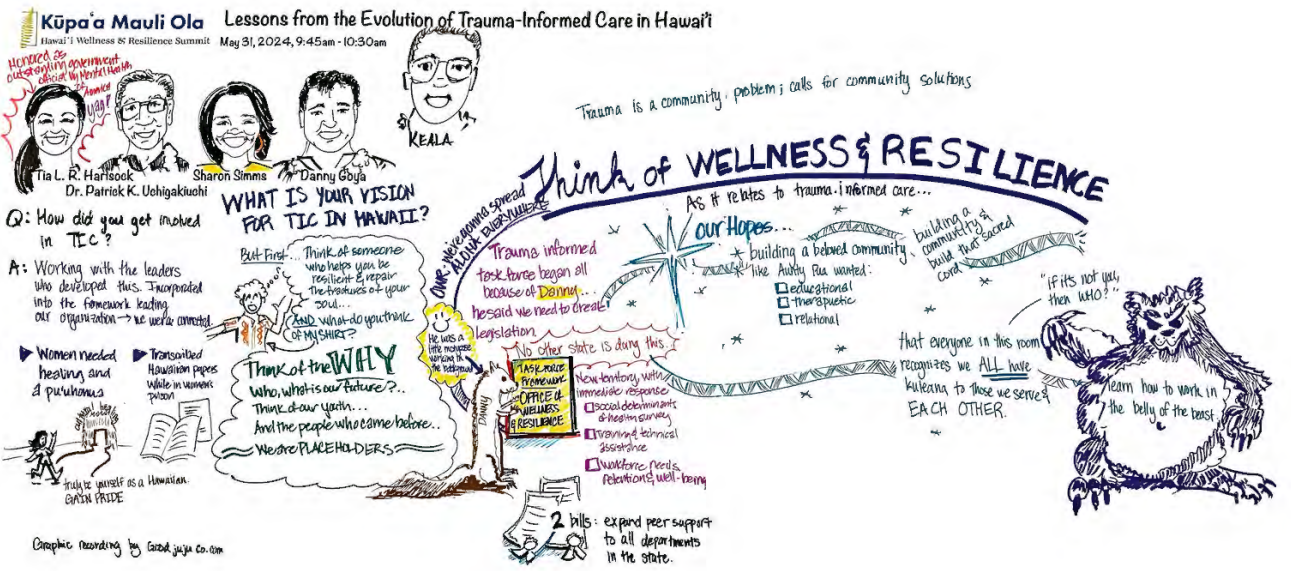 Kūpaʻa Mauli Ola
Hawaiʻi Wellness & Resilience Summit
Lessons from the Evolution of Trauma-Informed Care in Hawaiʻi
May 31, 2024, 9:45am - 10:30am
Honored as
outstanding government
official by Mental Health
of America
yay!
KEALA
Tia L. R. Hartsock
Dr. Patrick K. Uchigakiuchi
Sharon Simms
Danny Goya
Q: How did you get involved
in TIC?
A: Working with the leaders
who developed this. Incorporated
into the framework leading
our organization → we were
Women needed
healing and
a pu'uhonua
Transcribed
Hawaiian papers
while in women's
prison
truly be yourself as a Hawaiian.
GAIN PRIDE
Graphic recording by Goodjuju co.com
WHAT IS YOUR VISION
FOR TIC IN HAWAII?
But First... Think of someone
who helps you be
resilient & repair
the fractures of your
soul...
AND what do you think
OF MY SHIRT?
Think of the WHY
Who, what is our future?..
Think of our youth...
And the people who came before..
We are PLACEHOLDERS
we're gonna spread
ALOHA EVERYWHERE
He was a
little mongoose
working in
the background
DANNY
Trauma informed
task force began all
because of Danny...
he said we need to create
legislation
No other state is doing this.
TASK FORCE
Framework
OFFICE of
WELLNESS
& RESILIENCE
New territory with
immediate response
social determinants
of health survey
Training & technical
assistance
Workforce needs,
retention & well-being
2 bills: expand peer support
to all departments
in the state.
Trauma is a community problem; calls for community solutions
Think of WELLNESS & RESILIENCE
As it relates to trauma-informed care...
our Hopes...
building a beloved community
like Aunty Pua wanted:
educational
therapuetic
relational
building a
community &
build that sacred
cord
that everyone in this room
recognizes we ALL have
kuleana to those we serve &
EACH OTHER.
"if it's not you,
then WHO?"
learn how to work in
the belly of the beast.